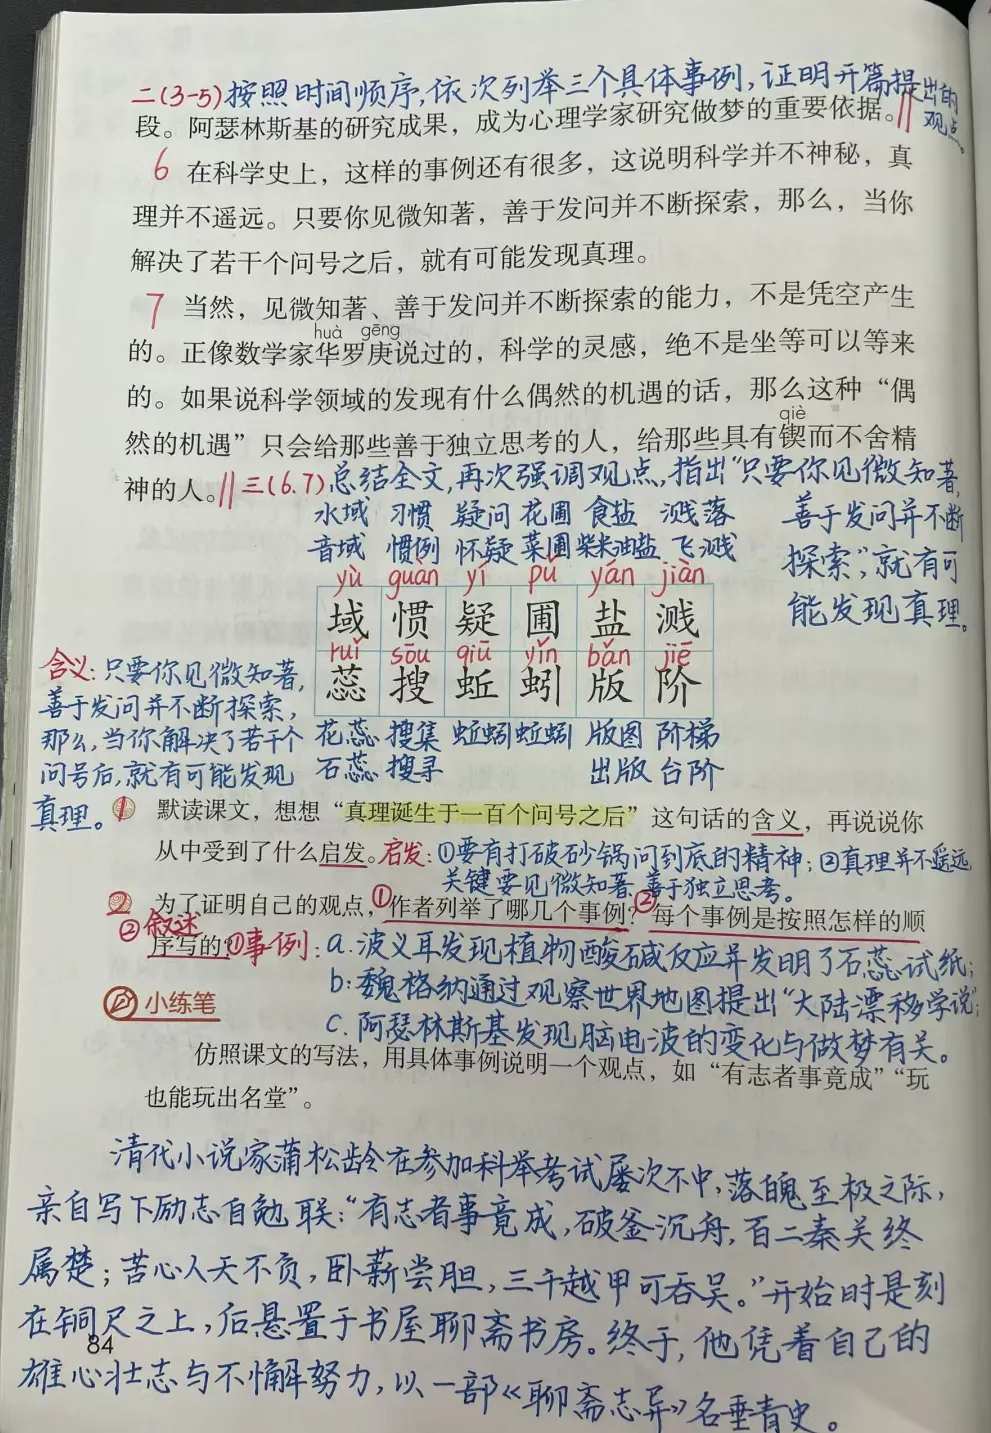 二(3-5)按照时间顺序,依次列举三个具体事例,证明开篇提出的
观点。
段。阿瑟林斯基的研究成果，成为心理学家研究做梦的重要依据。
6 在科学史上，这样的事例还有很多，这说明科学并不神秘，真
理并不遥远。只要你见微知著，善于发问并不断探索，那么，当你
解决了若干个问号之后，就有可能发现真理。
7 当然，见微知著、善于发问并不断探索的能力，不是凭空产生
huà gēng
的。正像数学家华罗庚说过的，科学的灵感，绝不是坐等可以等来
的。如果说科学领域的发现有什么偶然的机遇的话，那么这种“偶
qiè
然的机遇”只会给那些善于独立思考的人，给那些具有锲而不舍精
神的人。
三(6.7)总结全文,再次强调观点,指出“只要你见微知著,
善于发问并不断
探索”,就有可
能发现真理。
水域 习惯 疑问 花圃 食盐 溅落
音域 惯例 怀疑 菜圃 柴米油盐 飞溅
yù guàn yí pǔ yán jiàn
域 惯 疑 圃 盐 溅
ruǐ sōu qiū yǐn bǎn jiē
蕊 搜 蚯 蚓 版 阶
花蕊 搜集 蚯蚓 蚯蚓 版图 阶梯
石蕊 搜寻 出版 台阶
含义:只要你见微知著,
善于发问并不断探索,
那么,当你解决了若干个
问号后,就有可能发现
真理。
1 默读课文，想想“真理诞生于一百个问号之后”这句话的含义，再说说你
从中受到了什么启发。
启发:①要有打破砂锅问到底的精神;②真理并不遥远,
关键要见微知著 善于独立思考。
2 为了证明自己的观点，①作者列举了哪几个事例？②每个事例是按照怎样的顺
序写的？
②叙述
①事例:a.波义耳发现植物酸碱反应并发明了石蕊试纸;
b:魏格纳通过观察世界地图提出“大陆漂移学说”;
c.阿瑟林斯基发现脑电波的变化与做梦有关。
小练笔
仿照课文的写法，用具体事例说明一个观点，如“有志者事竟成”“玩
也能玩出名堂”。
清代小说家蒲松龄在参加科举考试屡次不中,落魄至极之际,
亲自写下励志自勉联:“有志者事竟成,破釜沉舟,百二秦关终
属楚;苦心人天不负,卧薪尝胆,三千越甲可吞吴。”开始时是刻
在铜尺之上,后悬置于书屋聊斋书房。终于,他凭着自己的
84
雄心壮志与不懈努力,以一部《聊斋志异》名垂青史。